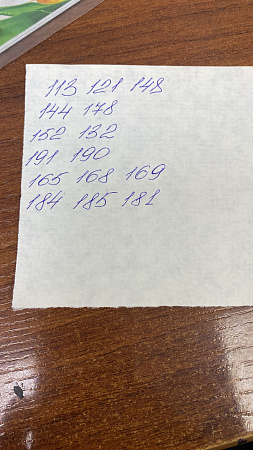 113 121 148
144 178
152 132
191 190
165 168 169
184 185 181